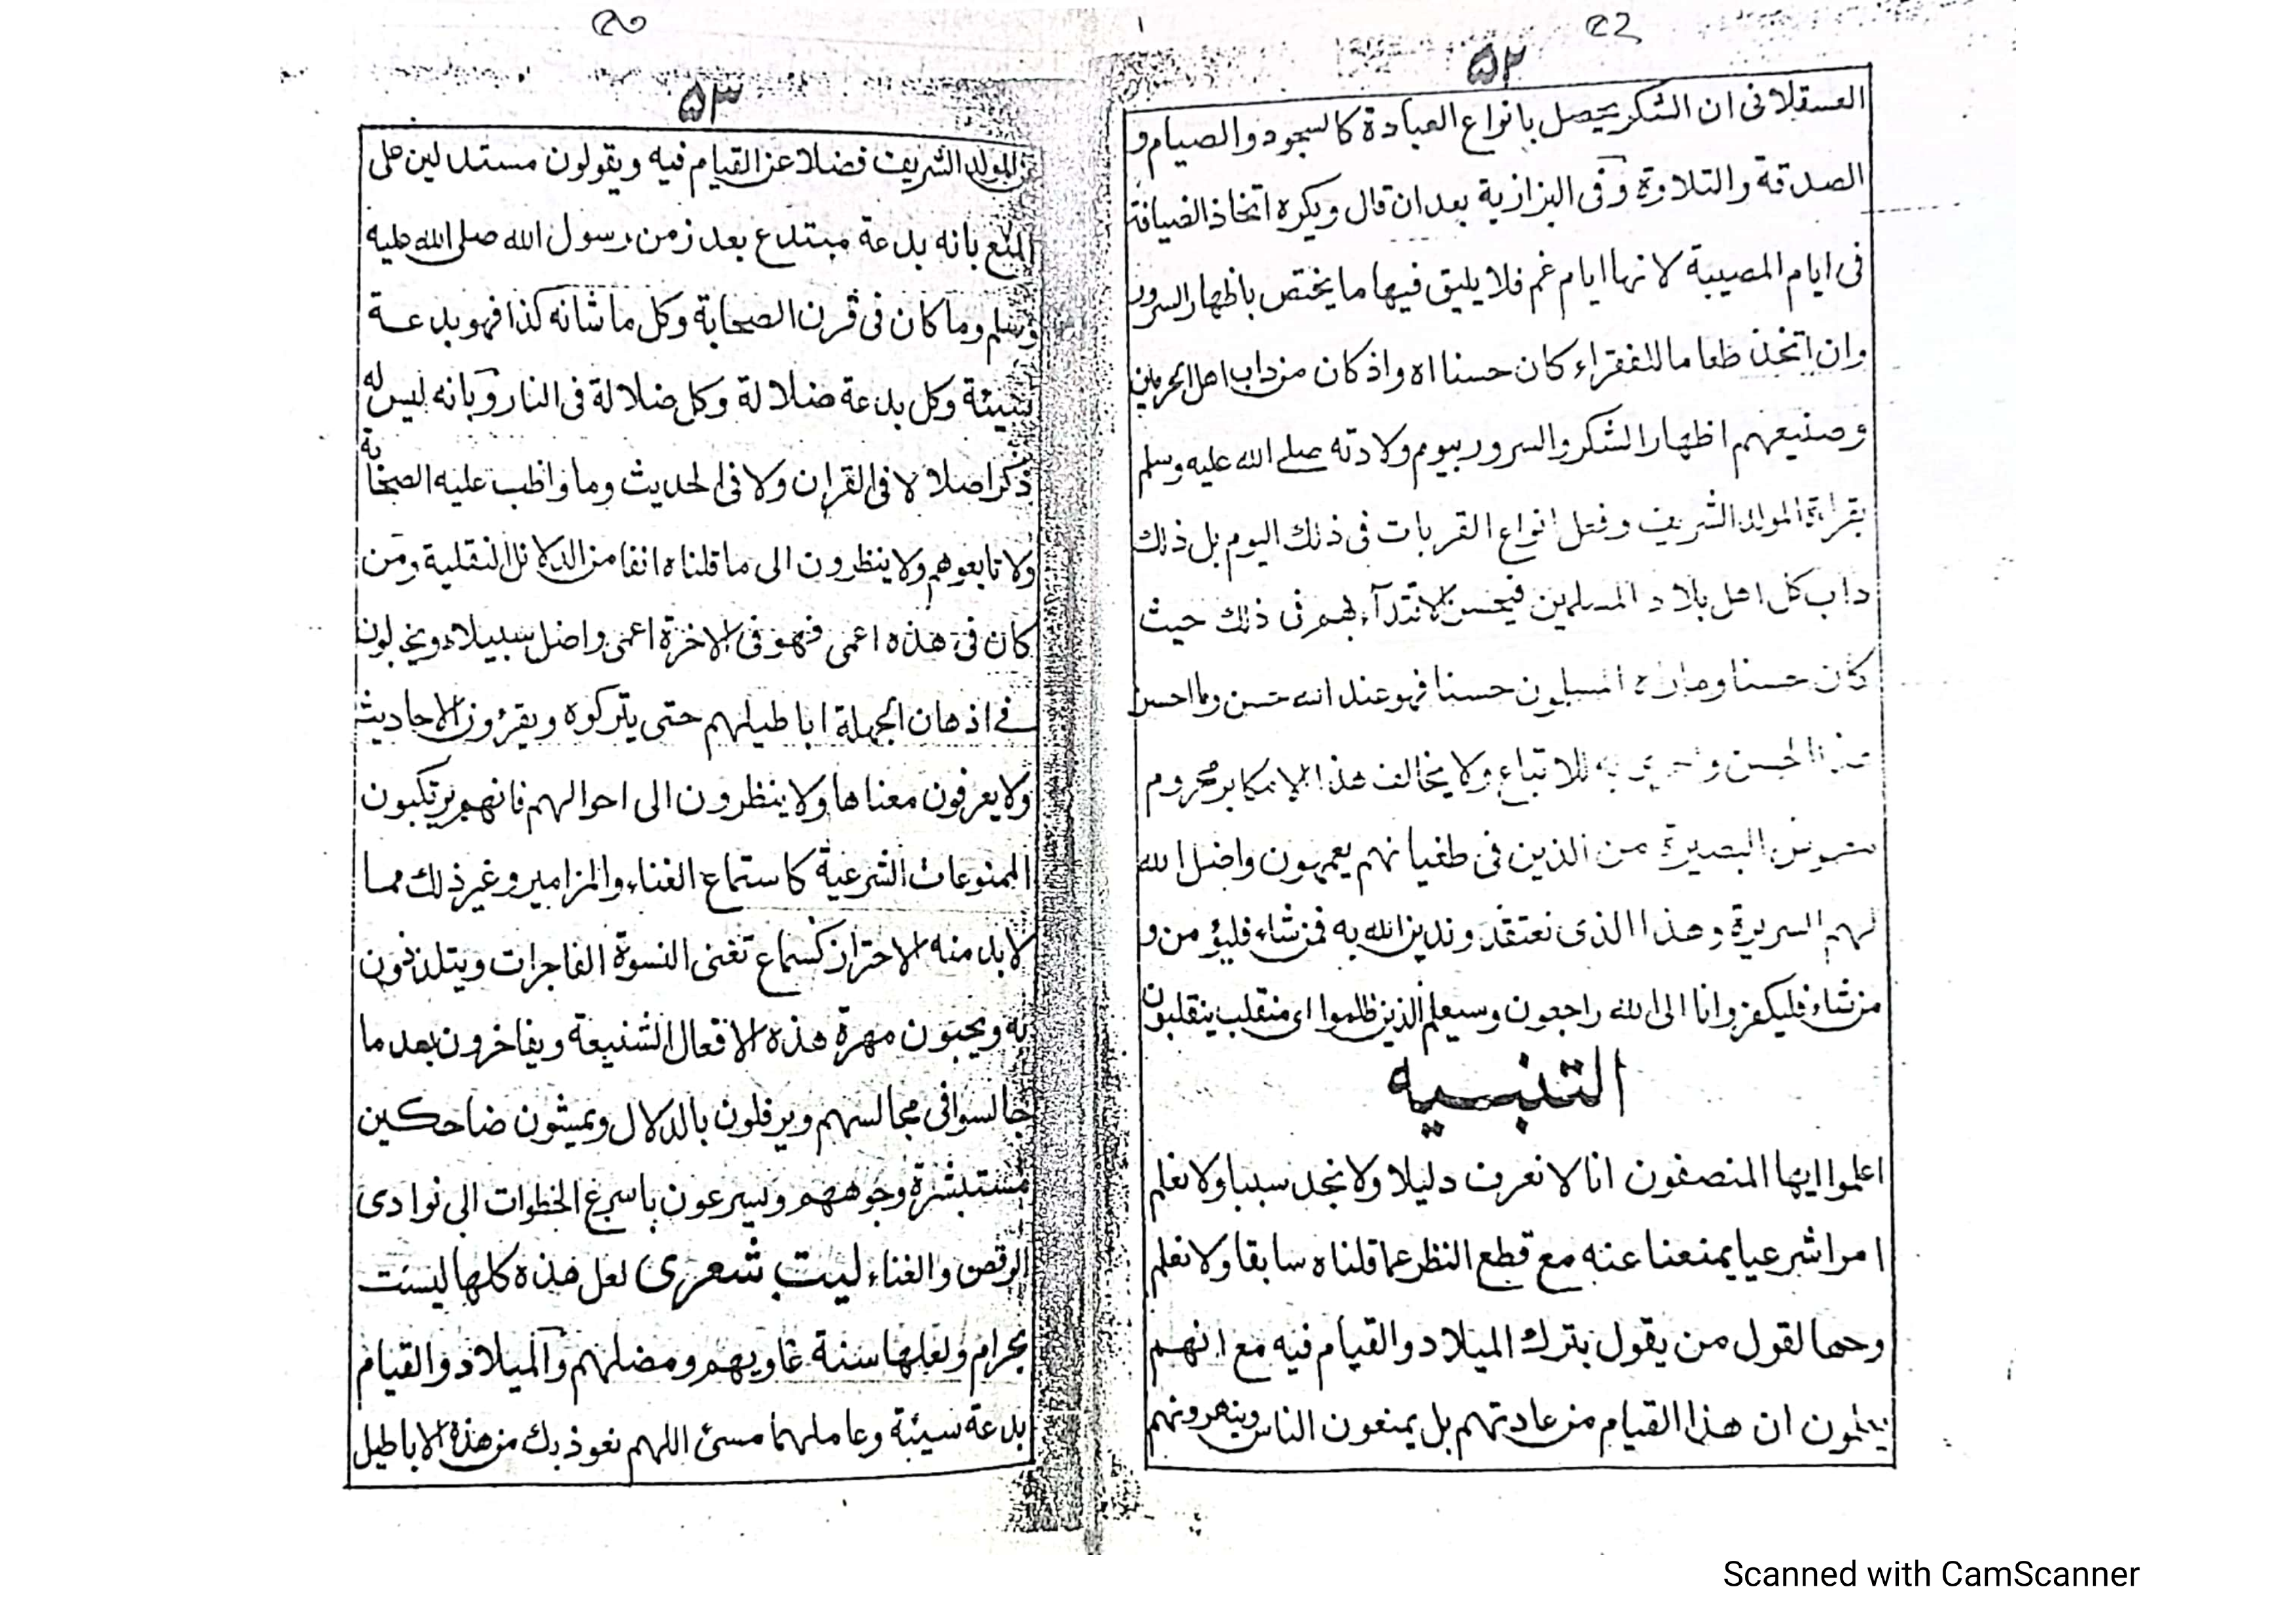 ۵۲
العسقلانی ان الشکر یحصل بانواع العبادة کالسجود والصیام و
الصدقة والتلاوة وفی البزازیة بعد ان قال ویکره اتخاذ الضیافة
فی ایام المصیبة لانها ایام غم فلا یلیق فیها ما یختص باظهار السرور
وان اتخذ طعاما للفقراء کان حسنا اه واذ کان من داب اهل الحرمین
وصنیعهم اظهار الشکر والسرور بیوم ولادته صلے الله علیه وسلم
بقراءة المولد الشریف وفعل انواع القربات فی ذلك الیوم بل ذلك
داب کل اهل بلاد المسلمین فیحسن الاقتدآء بهم فی ذلك حیث
کان حسنا وماراه المسلمون حسنا فهو عند الله حسن وما احسن
هذا الحسن به للاتباع ولا یخالف هذا الا مکابر محروم
البصیرة من الذین فی طغیانهم یعمهون واضل الله
لهم السریرة وهذا الذی نعتقد وندین الله به فمن شاء فلیؤمن و
من شاء فلیکفر وانا الی الله راجعون وسیعلم الذین ظلموا ای منقلب ینقلبون
التنبیه
اعلموا ایها المنصفون انا لا نعرف دلیلا ولا نجد سببا ولا نعلم
امرا شرعیا یمنعنا عنه مع قطع النظر عما قلناه سابقا ولا نعلم
وجها لقول من یقول بترك المیلاد والقیام فیه مع انهم
یعلمون ان هذا القیام من عادتهم بل یمنعون الناس وینهرونهم
۵۳
عن المولد الشریف فضلا عن القیام فیه ویقولون مستدلین علی
المنع بانه بدعة مبتدع بعد زمن رسول الله صلی الله علیه
وسلم وما کان فی قرن الصحابة وکل ما شانه کذا فهو بدعة
سیئة وکل بدعة ضلالة وکل ضلالة فی النار وبانه لیس له
ذکر اصلا لا فی القران ولا فی الحدیث وما واظب علیه الصحابة
ولا تابعوهم ولا ینظرون الی ما قلناه انفا من الدلائل النقلیة ومن
کان فی هذه اعمی فهو فی الاخرة اعمی واضل سبیلاء ویخبلون
فے اذهان الجهلة اباطیلهم حتی یترکوه ویقرؤن الاحادیث
ولا یعرفون معناها ولا ینظرون الی احوالهم فانهم یرتکبون
الممنوعات الشرعیة کاستماع الغناء والمزامیر وغیر ذلك مما
لابد منه الاحتراز کسماع تغنی النسوة الفاجرات ویتلذذون
به ویحبون مهرة هذه الافعال الشنیعة ویفاخرون بعد ما
جالسوا فی مجالسهم ویرفلون بالدلال ویمشون ضاحکین
مستبشرة وجوههم ویسرعون باسرع الخطوات الی نوادی
الرقص والغناء لیت شعری لعل هذه کلها لیست
بحرام ولعلها سنة غاویهم ومضلهم والمیلاد والقیام
بدعة سیئة وعاملهما مسئ اللهم نعوذ بك من هذه الاباطیل
Scanned with CamScanner